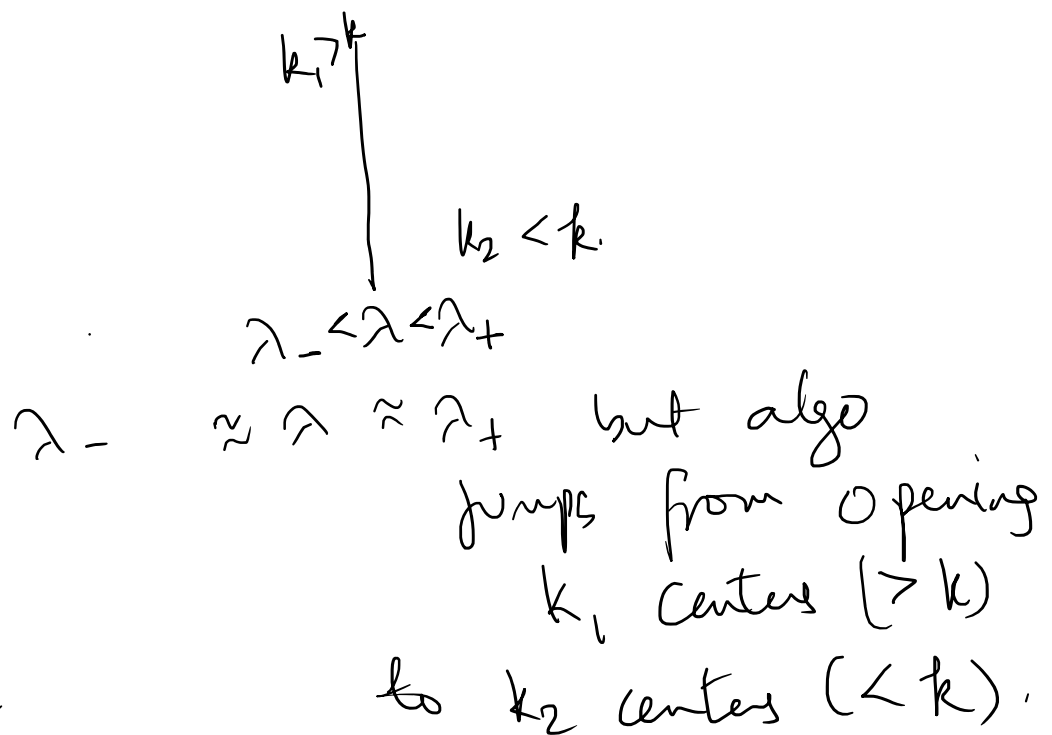 k₁ > k
k₂ < k.
λ₋ < λ < λ₊
λ₋ ≈ λ ≈ λ₊ but algo
jumps from opening
k₁ centers (> k)
to k₂ centers (< k).